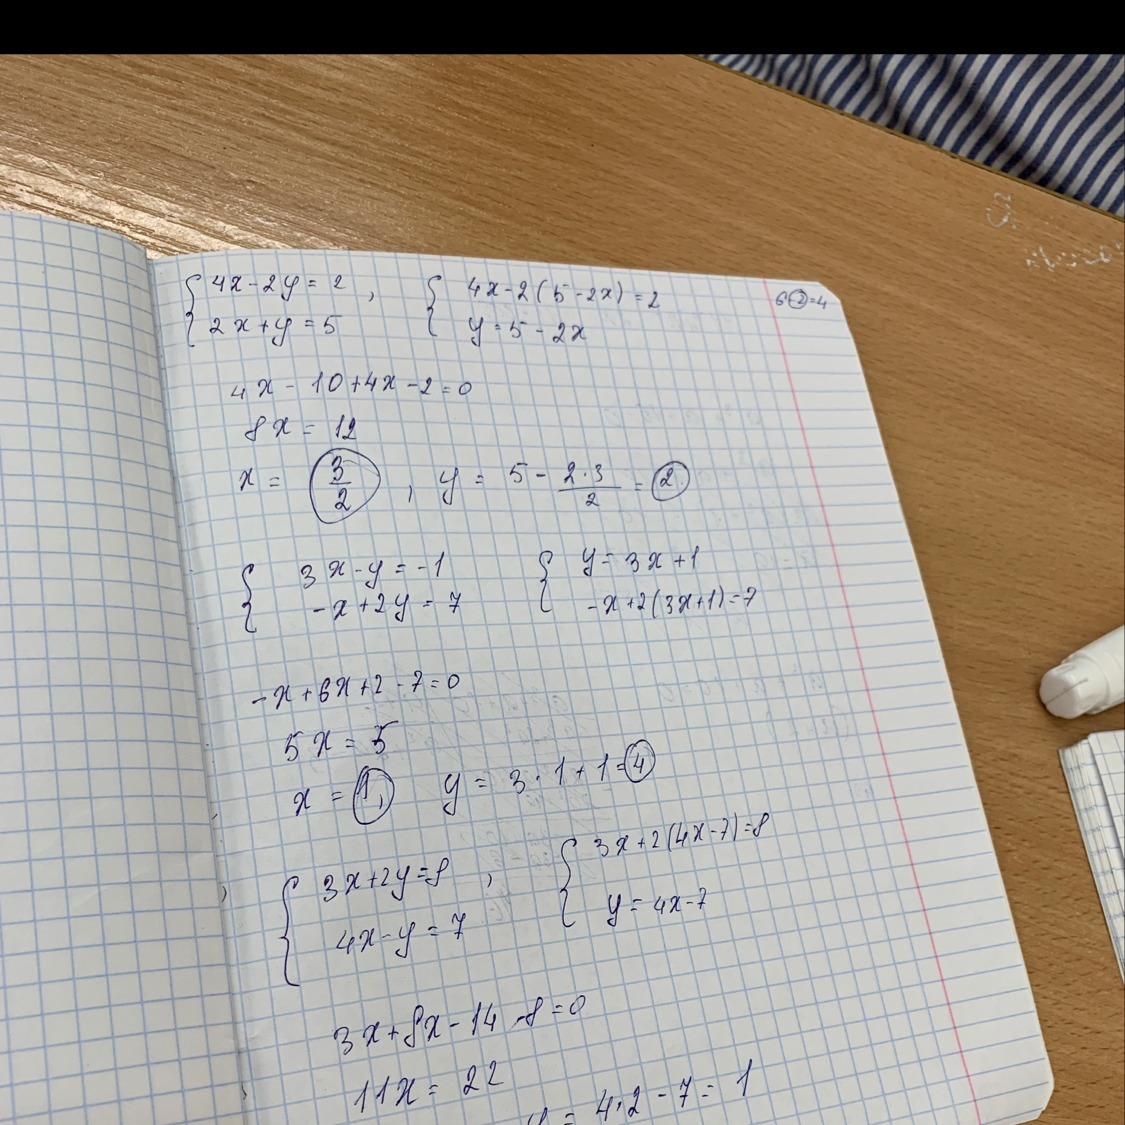 4x-2y=2, 4x-2(5-2x)=2
2x+y=5 y=5-2x
6-2=4
4x-10+4x-2=0
8x=12
x=3/2, y=5-2·3/2=2
3x-y=-1 y=3x+1
-x+2y=7 -x+2(3x+1)=7
-x+6x+2-7=0
5x=5
x=1, y=3·1+1=4
3x+2y=8, 3x+2(4x-7)=8
4x-y=7 y=4x-7
3x+8x-14-8=0
11x=22
y=4·2-7=1